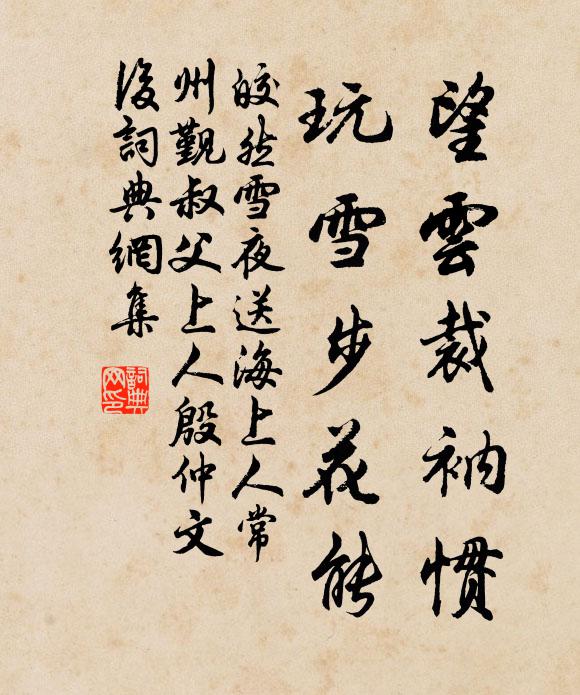 望雲裁衲慣
玩雪步花能
皎然雪夜送海上人常
州覲叔父上人殷仲文
後詞典網集
詞典
网印